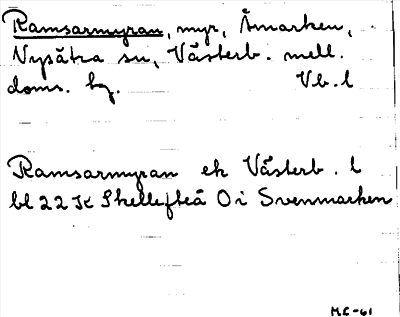 Ramsarmyran, myr, Åmarken,
Nysätra sn, Västerb. mell.
doms. hg. Vb. l
Ramsarmyran ek Västerb. l
bl 22 K Skellefteå O i Svenmarken
MC-61